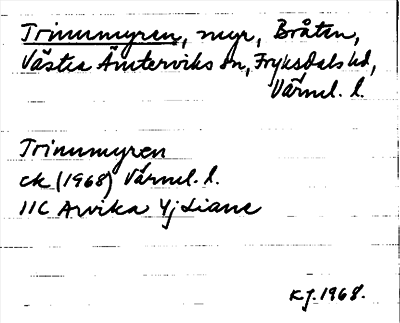 Trinnmyren, myr, Bråten,
Västra Ämterviks sn, Fryksdals hd,
Värml. l.
Trinnmyren
ek (1968) Värml. l.
11C Arvika 4j
K.J. 1968.